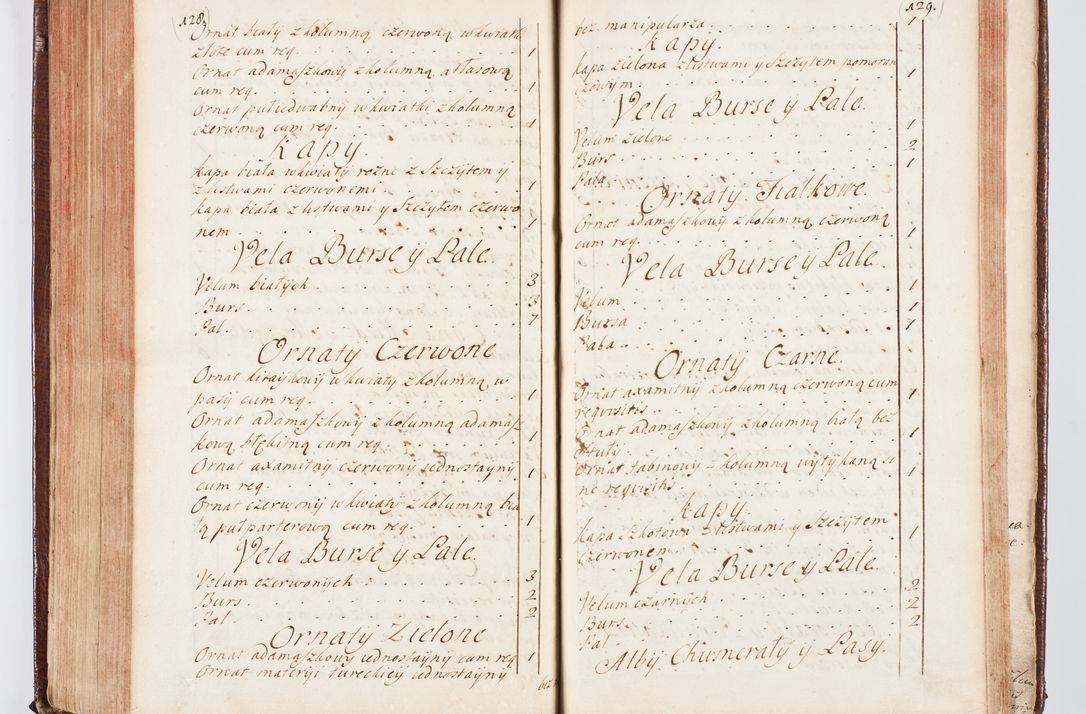 128.
Ornat biały z kolumną czerwoną w kwiatki
złote cum req. 1
Ornat adamaszkowij z kolumną atłasową
cum req. 1
Ornat pułiedwabnij w kwiatki z kolumną
czerwoną cum req. 1
Kapy
Kapa biała w kwiaty rożne z Szczytem ij
z listwami czerwonemi 1
Kapa biała z listwami y Szczytem czerwo
nem 1
Vela Burse y Pale
Velum białijch 3
Burs 3
Pal. 7
Ornaty Czerwone
Ornat kitaijkowij w kwiaty z kolumną w
pasij cum req. 1
Ornat adamaszkowij z kolumną adamasz
kową błękitną cum req. 1
Ornat axamitnij czerwonij iednostaijnij
cum req. 1
Ornat czerwonij w kwiaty z kolumną bia
łą pułparterową cum req. 1
Vela Burse y Pale
Velum czerwonijch 3
Burs 2
Pal 2
Ornaty Zielone
Ornat adamaszkowij iednostaijnij cum req 1
Ornat materyi tureckieij iednostaijnij
bez
129.
bez manipularza. 1
Kapy.
Kapa zielona z listwami y Szczytem pomoran
czowym 1
Vela Burse y Pale
Velum Zielone 1
Burs 2
Pala 1
Ornaty Fiałkowe.
Ornat adamaszkowij z kolumną czerwoną
cum req. 1
Vela Burse y Pale.
Velum 1
Bursa 1
Pala 7
Ornaty Czarne.
Ornat axamitnij z kolumną czerwoną cum
requisitis 1
Ornat adamaszkowij z kolumną białą bez
stuły 1
Ornat tabinowij z kolumną wytykaną si
ne requisitis 1
Kapy.
Kapa z listwami y Szczytem
czerwonem 1
Vela Burse y Pale.
Velum czarnijch 2
Burs 2
Pal 2
Albij, Chusneraty y Pasy.